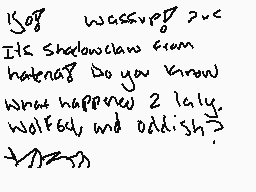 Yo! wassup!
Its Shadowclaw from
hatena! Do you know
what happened 2 laly,
wolfgel and oddish?